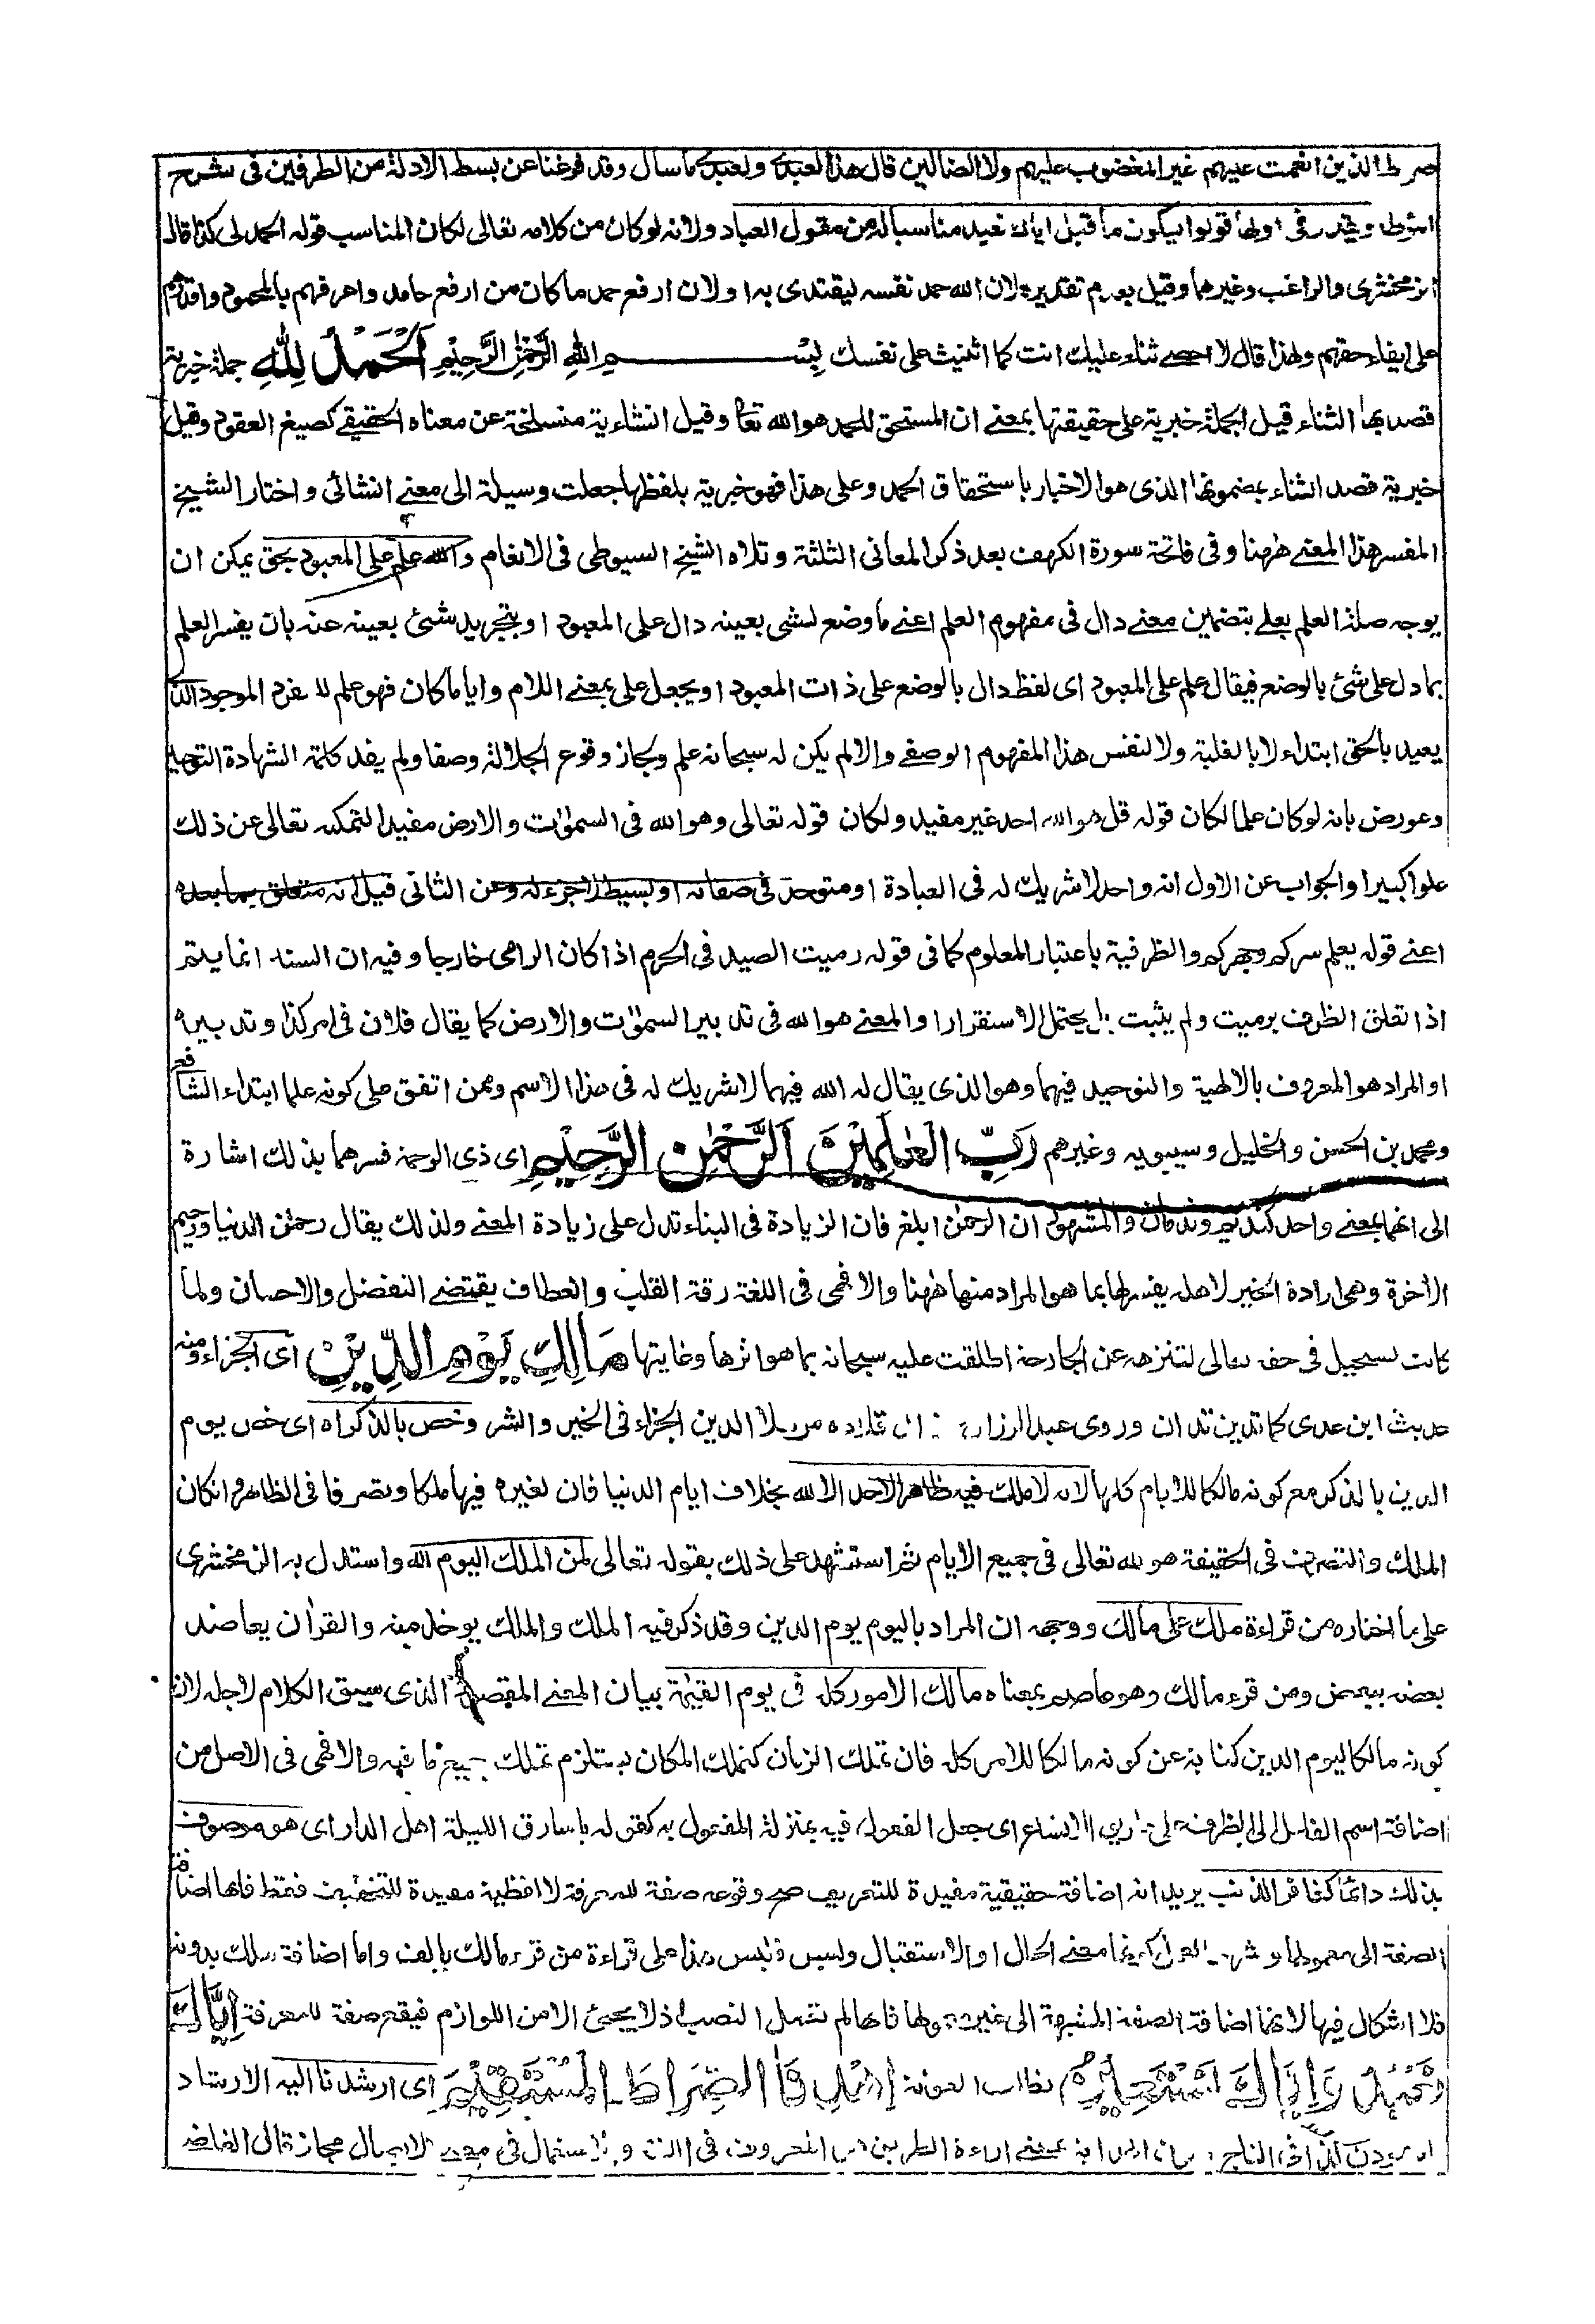 صراط الذين انعمت عليهم غير المغضوب عليهم ولا الضالين قال هذا لعبدى ولعبدى ما سأل وقد فرغنا عن بسط الادلة من الطرفين فى شرح
ويقدر فى اولها قولوا ليكون ما قبل اياك نعبد مناسبا له من مقول العباد ولانه لو كان من كلامه تعالى لكان المناسب قوله الحمد لى كذا قال
الزمخشرى والراغب وغيرهما وقيل بعدم تقديره لان الله حمد نفسه ليقتدى به اولان ارفع حمد ما كان من ارفع حامد واعرفهم بالمحمود واقدرهم
على ايفاء حقهم ولهذا قال لا احصے ثناء عليك انت كما اثنيت على نفسك بِسْمِ اللهِ الرَّحْمٰنِ الرَّحِيْمِ اَلْحَمْدُ لِلّٰهِ جملة خبرية
قصد بها الثناء قيل الجملة خبرية على حقيقتها بمعنے ان المستحق للحمد هو الله تعا وقيل انشاءية منسلخة عن معناه الحقيقے كصيغ العقود وقيل
خبرية قصد الثناء بمضمونها الذى هو الاخبار باستحقاق الحمد وعلى هذا فهو خبرية بلفظها جعلت وسيلة الى معنے انشائى واختار الشيخ
المفسر هذا المعنے ههنا وفى فاتحة سورة الكهف بعد ذكر المعانى الثلثة وتلاه الشيخ السيوطى فى الانعام والله علم على المعبود بحق يمكن ان
يوجه صلة العلم بعلے بتضمين معنے دال فى مفهوم العلم اعنے ما وضع لشى بعينه دال على المعبود او بتجريد شئ بعينه عنه بان يفسر العلم
بما دل على شئ بالوضع فيقال علم على المعبود اى لفظ دال بالوضع على ذات المعبود او يجعل على بمعنے اللام وايا ما كان فهو علم للفرد الموجود الذى
يعبد بالحق ابتداء لا بالغلبة ولا لنفس هذا المفهوم الوصفے والا لم يكن له سبحانه علم وبجاز وقوع الجلالة وصفا ولم يفد كلمة الشهادة التوحيد
وعورض بانه لو كان علما لكان قوله قل هو الله احد غير مفيد ولكان قوله تعالى وهو الله فى السمٰوٰت والارض مفيدا لتمكنه تعالى عن ذلك
علوا كبيرا والجواب عن الاول انه واحد لا شريك له فى العبادة او متوحد فى صفاته او بسيط لا جزء له وعن الثانى قيل انه متعلق بما بعده
اعنے قوله يعلم سركم وجهركم والظرفية باعتبار المعلوم كما فى قوله رميت الصيد فى الحرم اذا كان الرامى خارجا وفيه ان السند انما يتم
اذا تعلق الظرف برميت ولم يثبت بل يحتمل الاستقرار او المعنے هو الله فى تدبير السمٰوٰت والارض كما يقال فلان فى امر كذا وتدبيره
او المراد هو المعروف بالالهية والتوحيد فيهما وهو الذى يقال له الله فيهما لا شريك له فى هذا الاسم وممن اتفق على كونه علما ابتداء الشافعے
ومحمد بن الحسن والخليل وسيبويه وغيرهم رَبِّ الْعٰلَمِيْنَ اَلرَّحْمٰنِ الرَّحِيْمِ اى ذى الرحمة فسرهما بذلك اشارة
الى انهما بمعنے واحد كنديم وندمان والمشهور ان الرحمٰن ابلغ فان الزيادة فى البناء تدل على زيادة المعنے ولذلك يقال رحمٰن الدنيا ورحيم
الاٰخرة وهى ارادة الخير لاهله يفسرها بما هو المراد منها ههنا والا فهى فى اللغة رقة القلب وانعطاف يقتضے التفضل والاحسان ولما
كانت تستحيل فى حقه تعالى لتنزهه عن الجارحة اطلقت عليه سبحانه بما هو اثرها وغايتها مٰلِكِ يَوْمِ الدِّيْنِ اى الجزاء ومنه
حديث ابن عدى كما تدين تدان وروى عبد الرزاق عن قتاده الدين الجزاء فى الخير والشر وخص بالذكر اه اى خص يوم
الدين بالذكر مع كونه مالكا للايام كلها لانه لا ملك فيه ظاهر الاحد الا لله بخلاف ايام الدنيا فان لغيره فيها ملكا وتصرفا فى الظاهر وانكان
الملك والتصرف فى الحقيقة هو لله تعالى فى جميع الايام ثم استشهد على ذلك بقوله تعالى لمن الملك اليوم لله واستدل به الزمخشرى
على ما اختاره من قراءة ملك على مالك ووجهه ان المراد باليوم يوم الدين وقد ذكر فيه الملك والملك يوخذ منه والقراٰن يعاضد
بعضه ببعض ومن قرء مالك وهو عاصم بمعناه مالك الامور كله فى يوم القيٰمة بيان المعنے المقصود الذى سيق الكلام لاجله لان
كونه مالكا ليوم الدين كناية عن كونه مالكا للامر كله فان تملك الزمان كتملك المكان يستلزم تملك جميع ما فيه والا فهى فى الاصل من
اضافة اسم الفاعل الى الظرف على طريق الاتساع اى جعل المفعول فيه بمنزلة المفعول به كقوله يا سارق الليلة اهل الدار اى هو موصوف
بذلك دائما كغافر الذنب يريد انه اضافة حقيقية مفيدة للتعريف صح وقوعه صفة للمعرفة لا لفظية مفيدة للتخفيف فقط فانها اضافة
الصفة الى معمولها معنے الحال او الاستقبال وليس فليس هذا على قراءة من قرء مالك بالف واما اضافة ملك بدونه
فلا اشكال فيها لانها اضافة الصفة المشبهة الى غير معمولها فانها لم تعمل النصب اذ لا يجئ الا من اللوازم فيقع صفة للمعرفة اِيَّاكَ
نَعْبُدُ وَاِيَّاكَ نَسْتَعِيْنُ نطلب المعونة اِهْدِنَا الصِّرَاطَ الْمُسْتَقِيْمَ اى ارشدنا اليه الارشاد
فى التاج